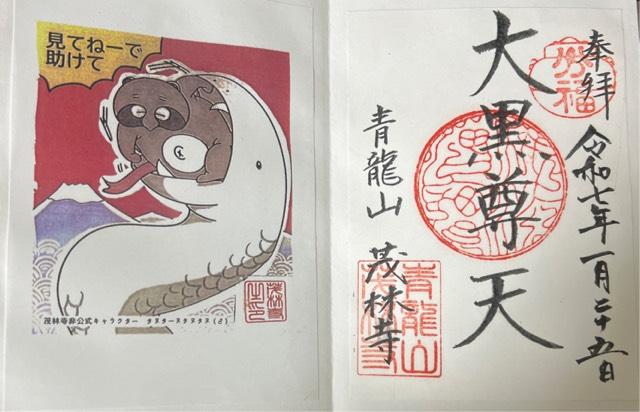 見てねーで
助けて
茂林寺非公式キャラクター タヌターヌタヌタヌ(8)
茂林寺
奉拝
令和七年一月二十五日
大黒尊天
青龍山 茂林寺
青龍山
茂林寺